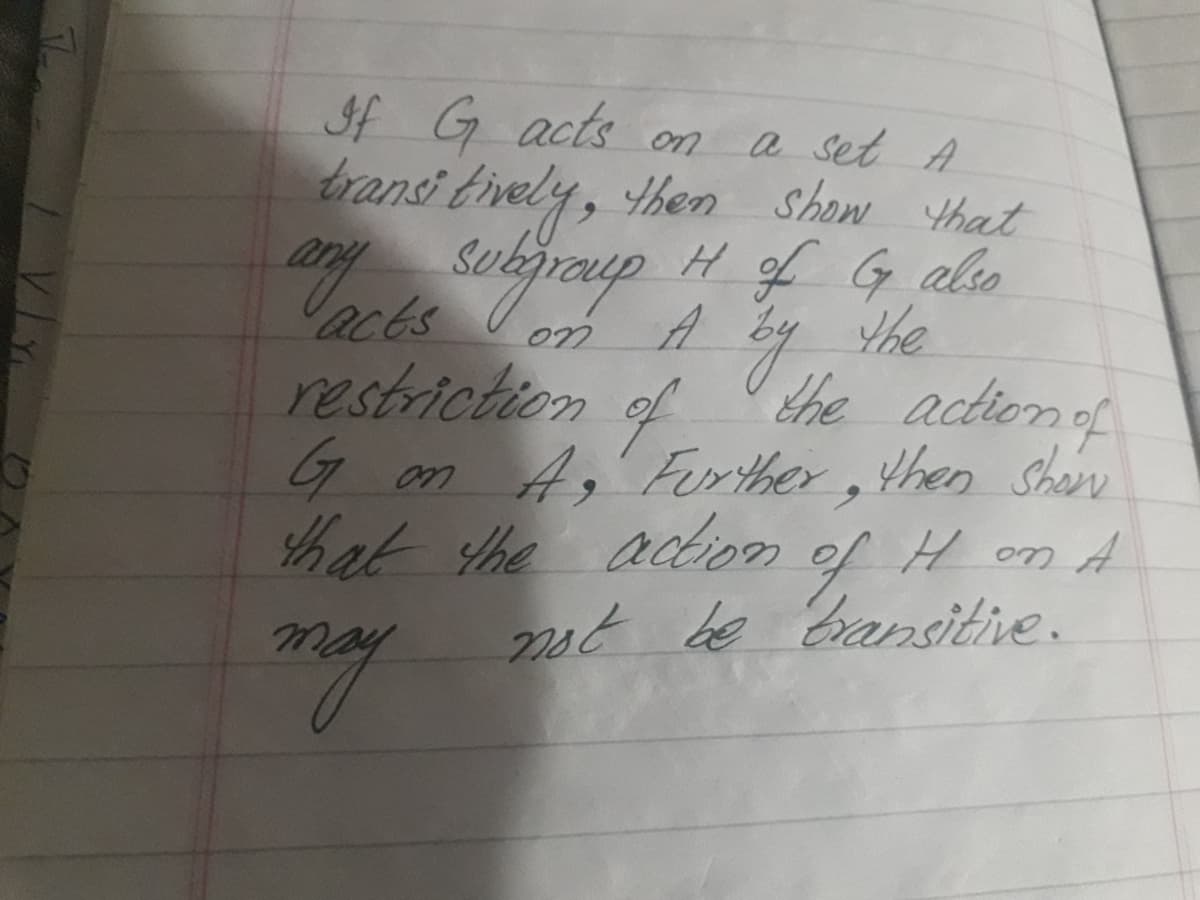 If G acts on a set A
transitively, then show that
any subgroup H of G also
acts on A by the
restriction of the action of
G on A, Further, then show
that the action of H on A
may not be transitive.